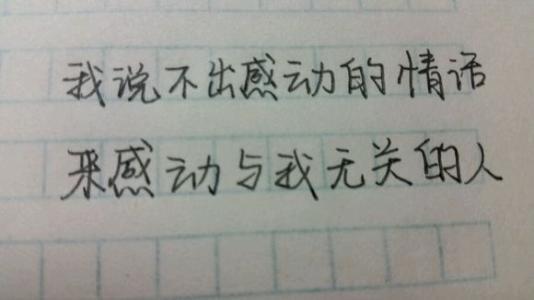 我说不出感动的情话
来感动与我无关的人